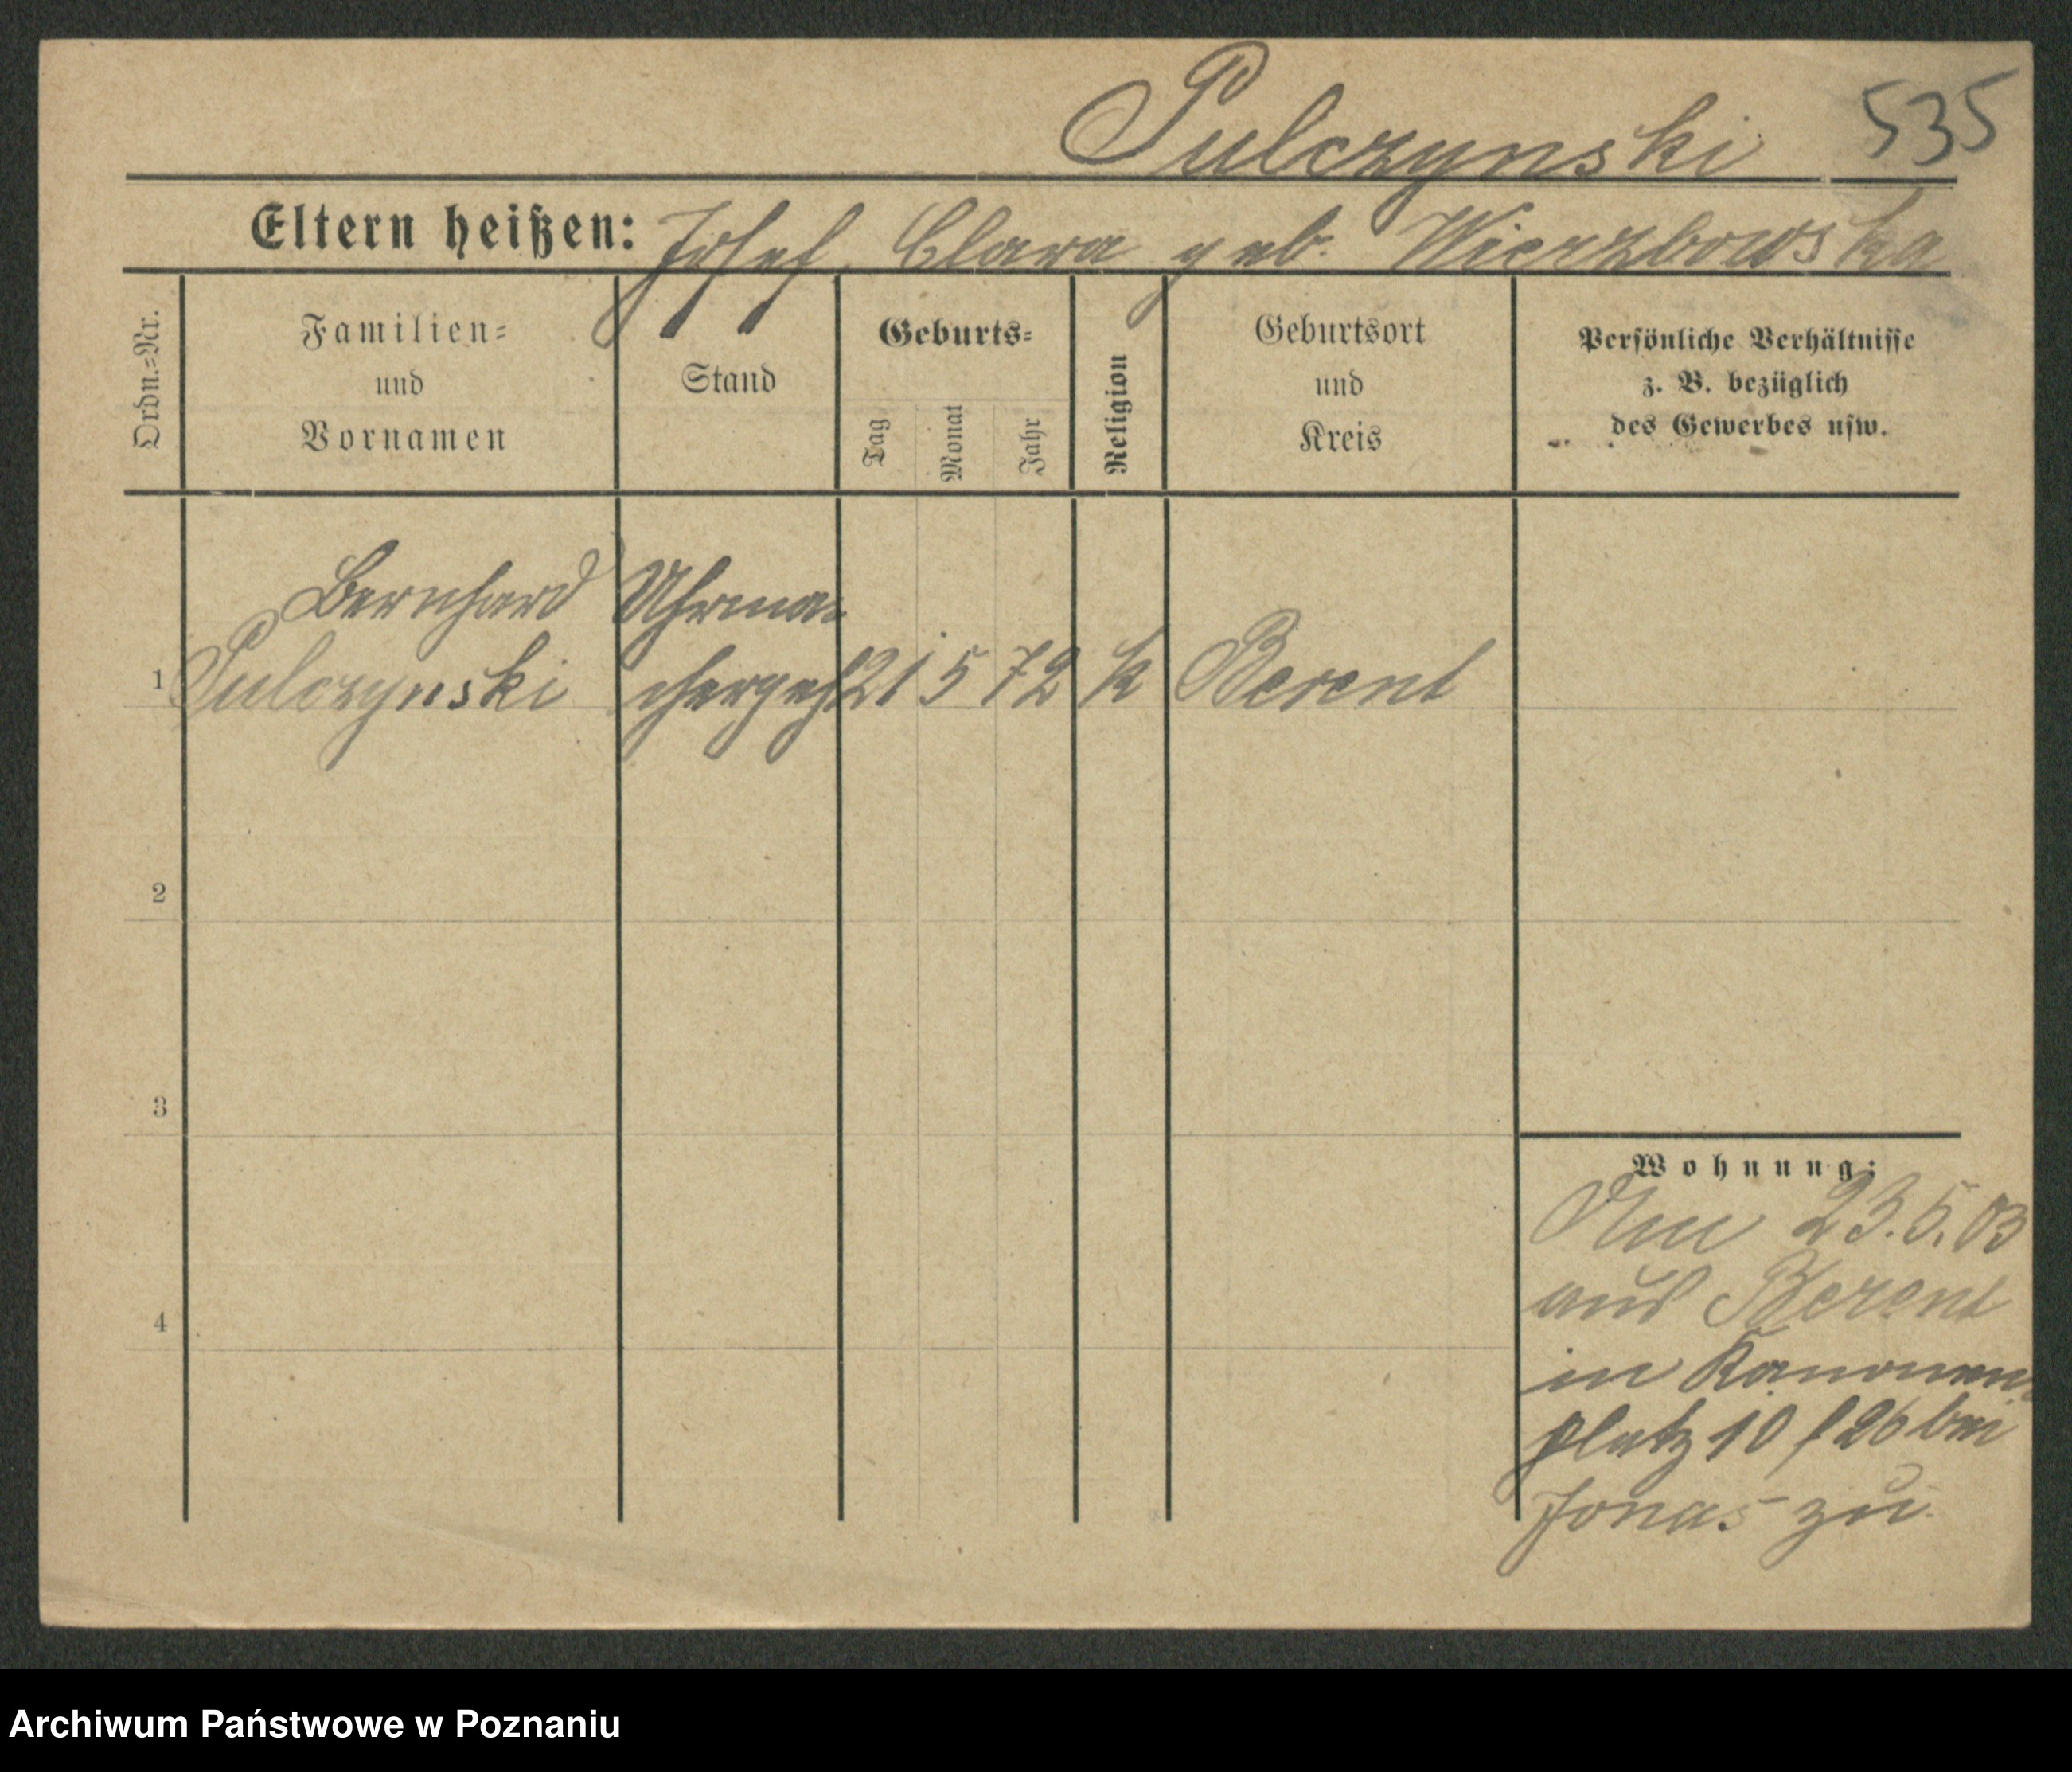 Pulczynski 535
Eltern heißen: Josef, Clara geb. Wierzbowska
Ordn.=Nr.
Familien=
und
Vornamen
Stand
Geburts=
Tag
Monat
Jahr
Religion
Geburtsort
und
Kreis
Persönliche Verhältnisse
z. B. bezüglich
des Gewerbes usw.
Bernhard Uhrma=
1 Pulczynski chergeh 21 5 72 k Berent
2
3
4
Wohnung:
Am 23.5.03
aus Berent
in Kanonen
platz 10 f 26 bei
Jonas zu
Archiwum Państwowe w Poznaniu